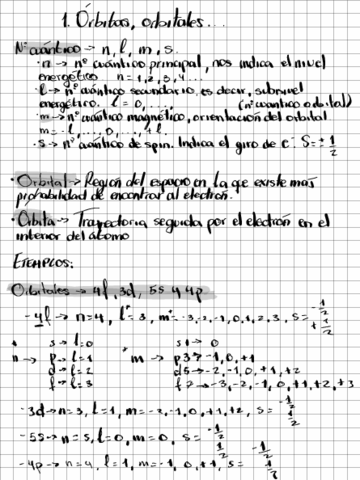 1. Órbitas, orbitales...
Nº cuántico → n, l, m, s.
· n → nº cuántico principal, nos indica el nivel
energético n = 1, 2, 3, 4...
· l → nº cuántico secundario, es decir, subnivel
energético. l = 0, ..., (nº cuántico orbital)
· m → nº cuántico magnético, orientación del orbital
m = -l, ..., 0, ..., +l.
· s → nº cuántico de spin. Indica el giro de e⁻. S = ± 1/2
· Orbital → Región del espacio en la que existe más
probabilidad de encontrar al electrón.
· Órbita → Trayectoria seguida por el electrón en el
interior del átomo
EJEMPLOS:
Orbitales → 4f, 3d, 5s y 4p
- 4f → n = 4, l = 3, m = -3, -2, -1, 0, 1, 2, 3, s = -1/2 +1/2
s → l = 0 s 1 → 0
n → p → l = 1 m → p 3 → -1, 0, +1
d → l = 2 d 5 → -2, -1, 0, +1, +2
f → l = 3 f 7 → -3, -2, -1, 0, +1, +2, +3
- 3d → n = 3, l = 2, m = -2, -1, 0, +1, +2, s = -1/2 1/2
- 5s → n = 5, l = 0, m = 0, s = -1/2 1/2
- 4p → n = 4, l = 1, m = -1, 0, +1, s = -1/2 1/2